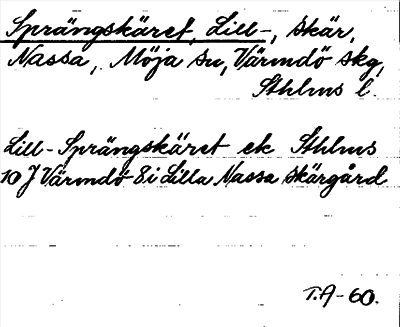 Sprängskäret, Lill-, skär,
Nassa, Möja sn, Värmdö skg,
Sthlms l.
Lill-Sprängskäret ek Sthlms
10 J Värmdö 8 i Lilla Nassa skärgård
T.A-60.